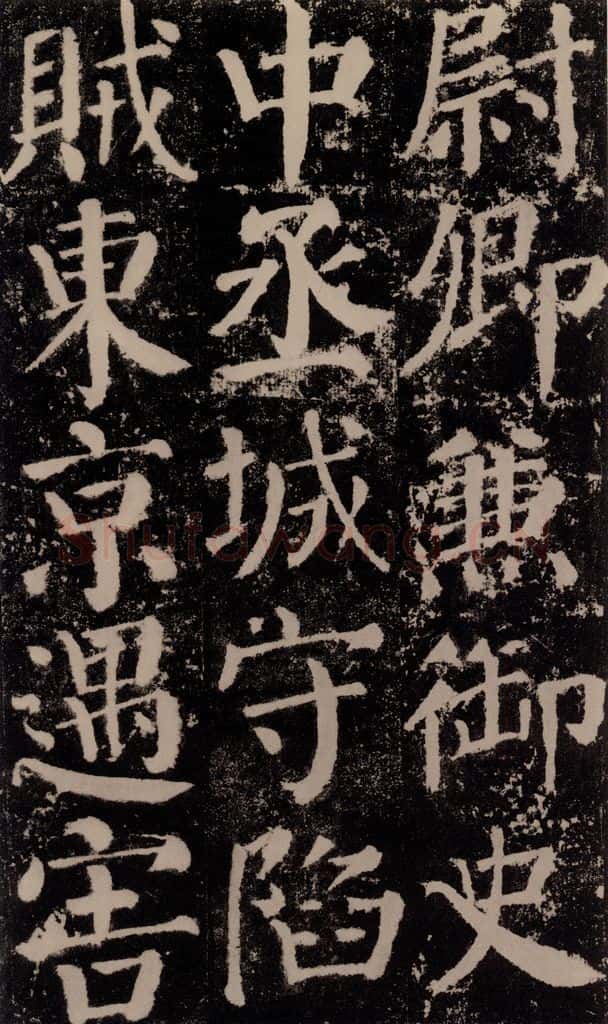 尉卿兼御史
中丞城守陷
賊東京遇害
Shufawang.CN